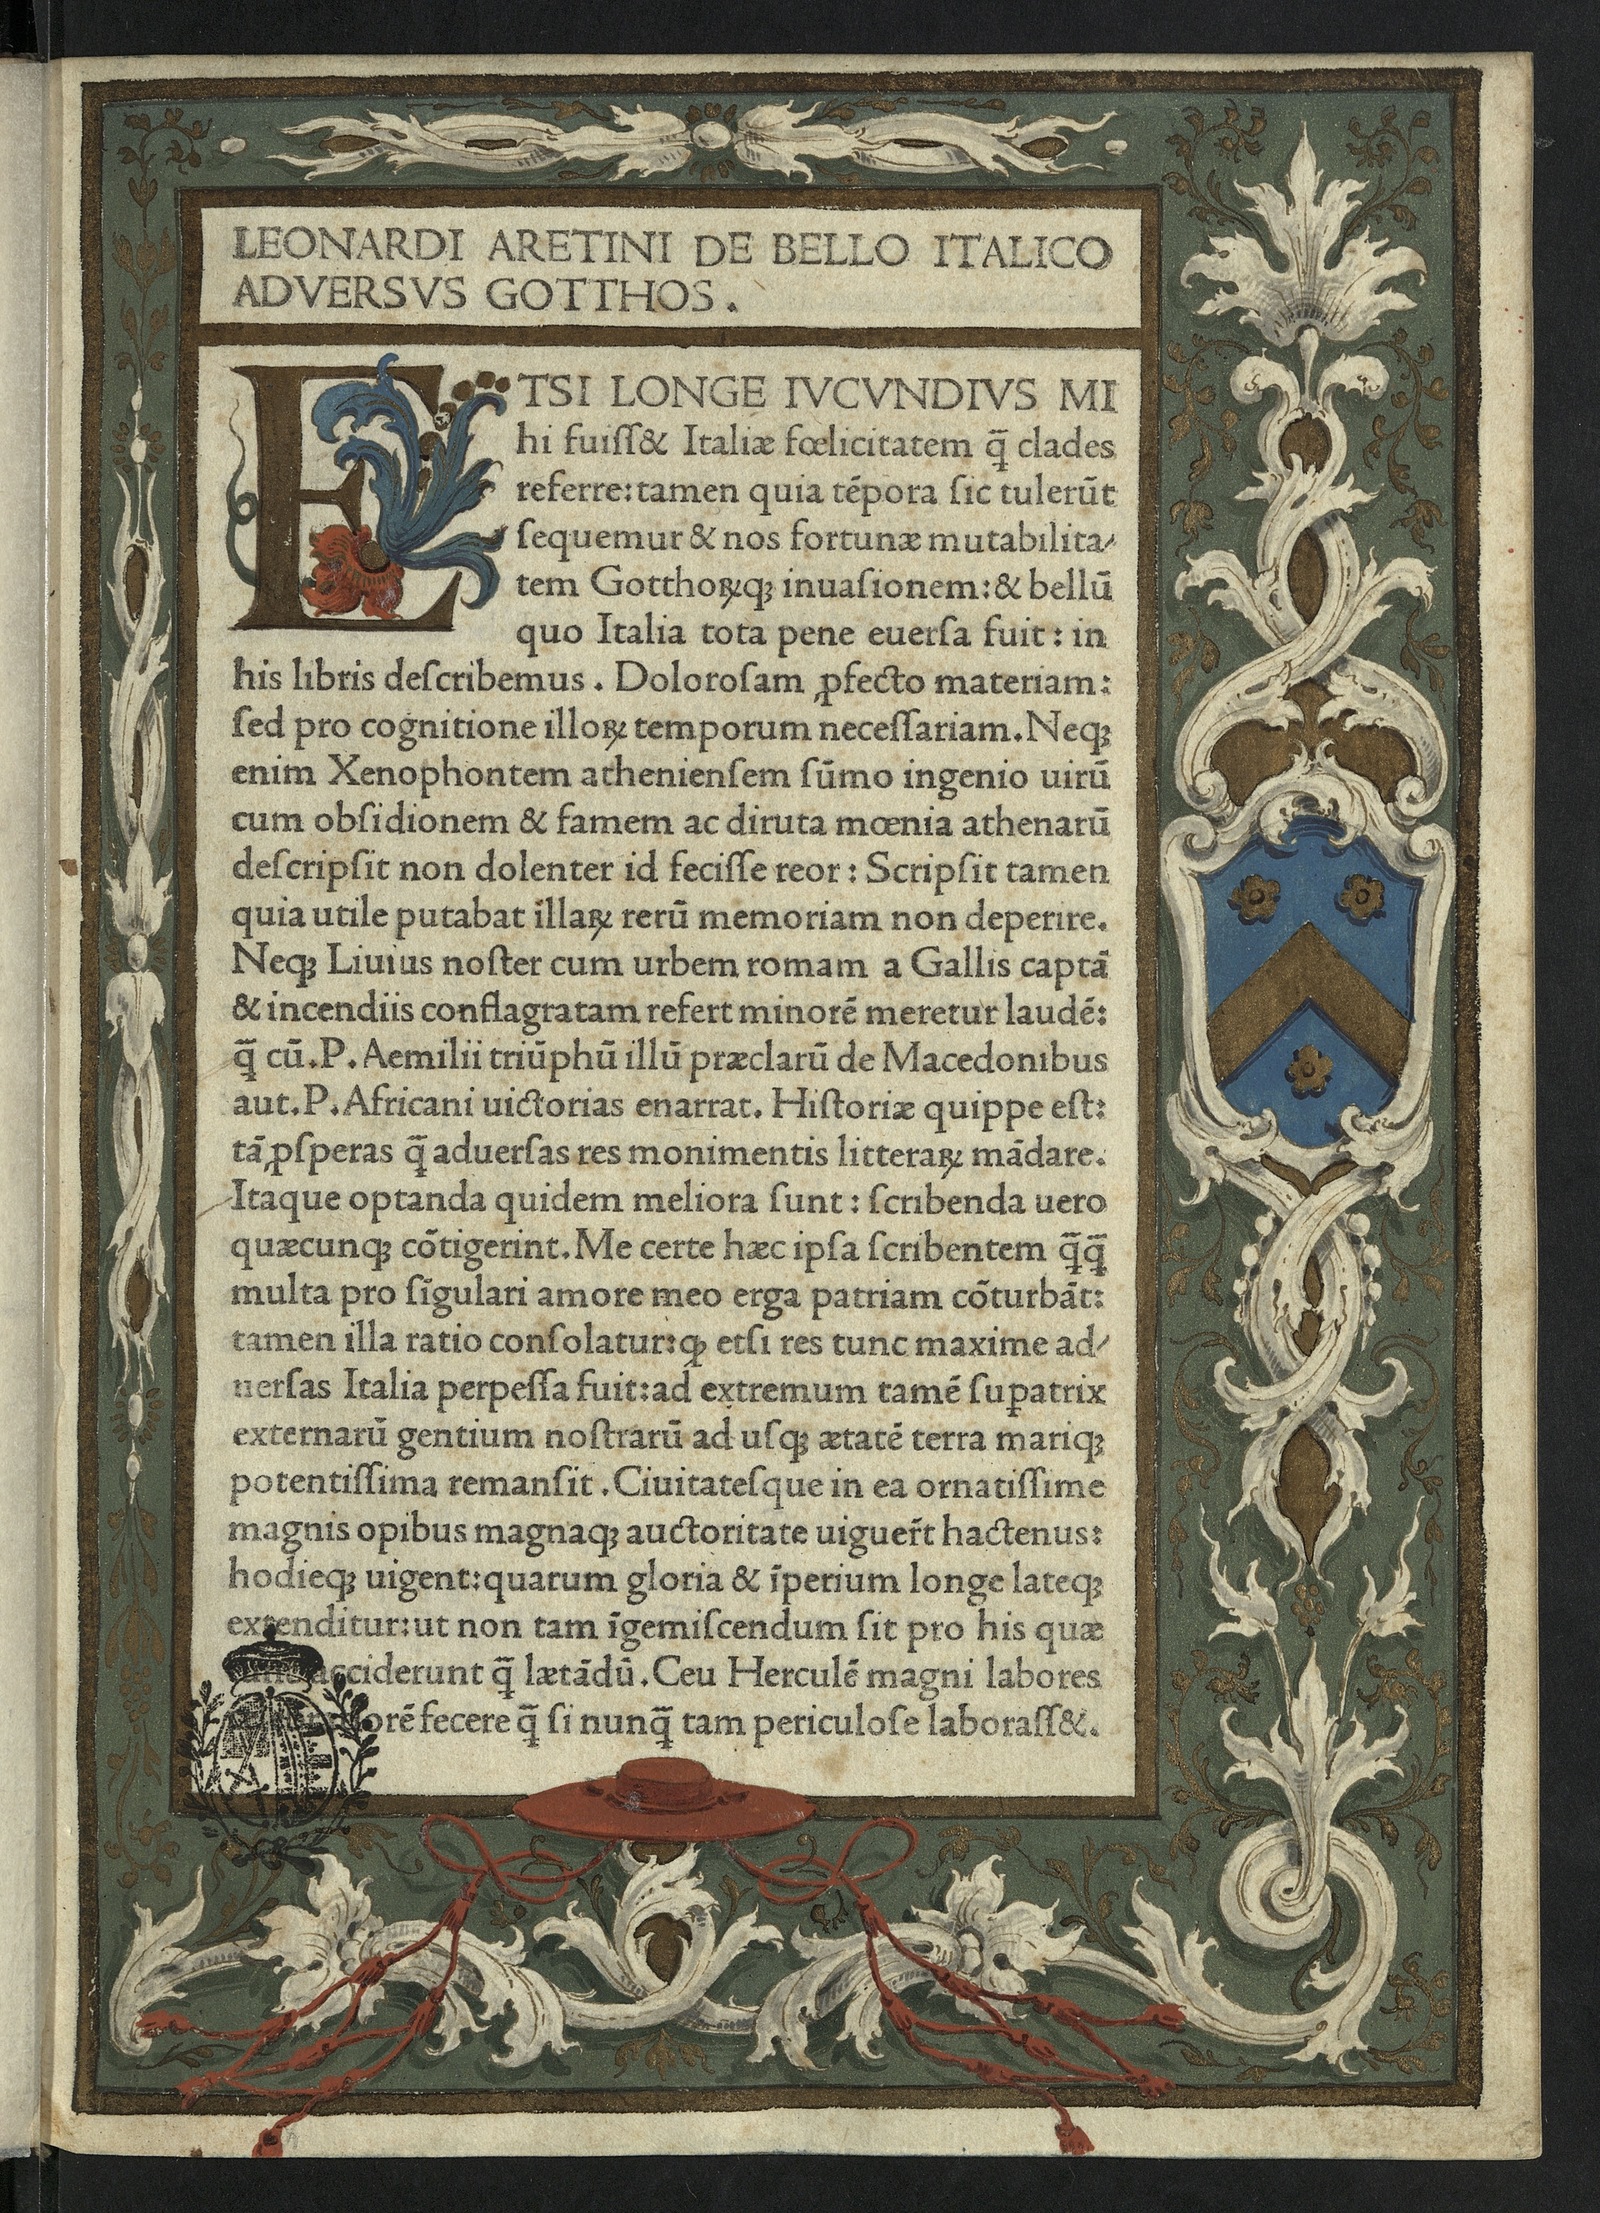 LEONARDI ARETINI DE BELLO ITALICO
ADVERSVS GOTTHOS.
ETSI LONGE IVCVNDIVS MI
hi fuiſſ& Italiæ fœlicitatem q̄ clades
referre: tamen quia tēpora ſic tulerūt
ſequemur & nos fortunæ mutabilita⸗
tem Gotthoꝝqꝫ inuaſionem: & bellū
quo Italia tota pene euerſa fuit: in
his libris deſcribemus. Doloroſam ꝓfecto materiam:
ſed pro cognitione illoꝝ temporum neceſſariam. Neqꝫ
enim Xenophontem athenienſem ſūmo ingenio uirū
cum obſidionem & famem ac diruta mœnia athenarū
deſcripſit non dolenter id feciſſe reor: Scripſit tamen
quia utile putabat illaꝝ rerū memoriam non deperire.
Neqꝫ Liuius noſter cum urbem romam a Gallis captā
& incendiis conflagratam refert minorē meretur laudē:
q̄ cū. P. Aemilii triūphū illū præclarū de Macedonibus
aut. P. Africani uictorias enarrat. Hiſtoriæ quippe eſt:
tā ꝓſperas q̄ aduerſas res monimentis litteraꝝ mādare.
Itaque optanda quidem meliora ſunt: ſcribenda uero
quæcunqꝫ cōtigerint. Me certe hæc ipſa ſcribentem q̄q̄
multa pro ſīgulari amore meo erga patriam cōturbāt:
tamen illa ratio conſolatur: ꝙ etſi res tunc maxime ad⸗
uerſas Italia perpeſſa fuit: ad extremum tamē ſuꝑatrix
externarū gentium noſtrarū ad uſqꝫ ætatē terra mariqꝫ
potentiſſima remanſit. Ciuitateſque in ea ornatiſſime
magnis opibus magnaqꝫ auctoritate uiguer̄t hactenus:
hodieqꝫ uigent: quarum gloria & īperium longe lateqꝫ
extenditur: ut non tam īgemiſcendum ſit pro his quæ
acciderunt q̄ lætādū. Ceu Herculē magni labores
fecere q̄ ſi nunq̄ tam periculoſe laboraſſ&.